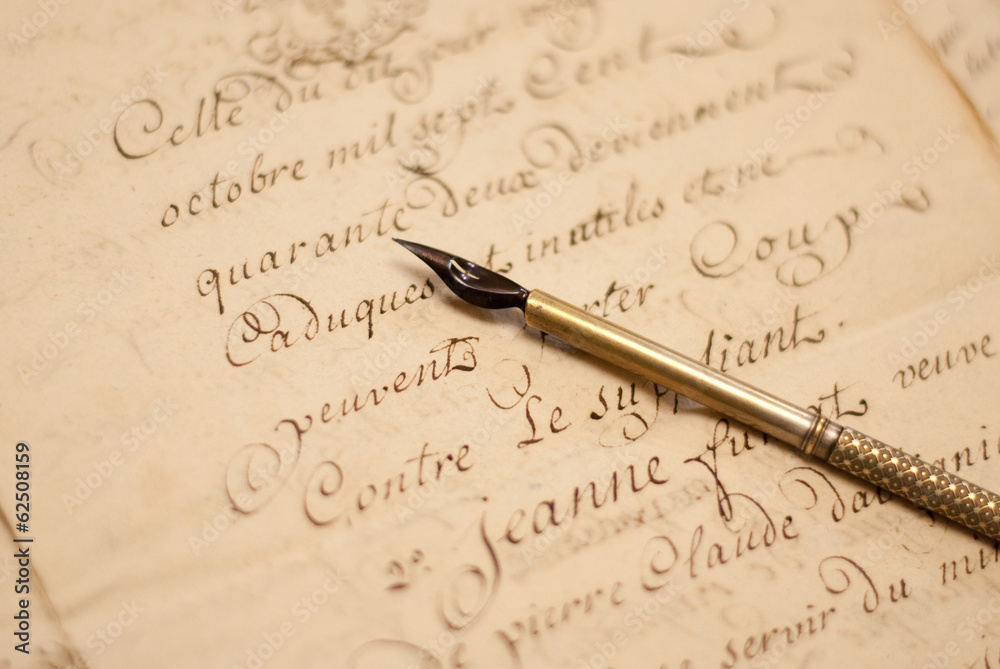 Celle du dit jour
octobre mil sept Cent
quarante deux deviennent
Caduques et inutiles et ne
peuvent porter Coup
Contre Le supliant.
2°. Jeanne fut veuve
pierre Claude
servir du
Adobe Stock | #62508159